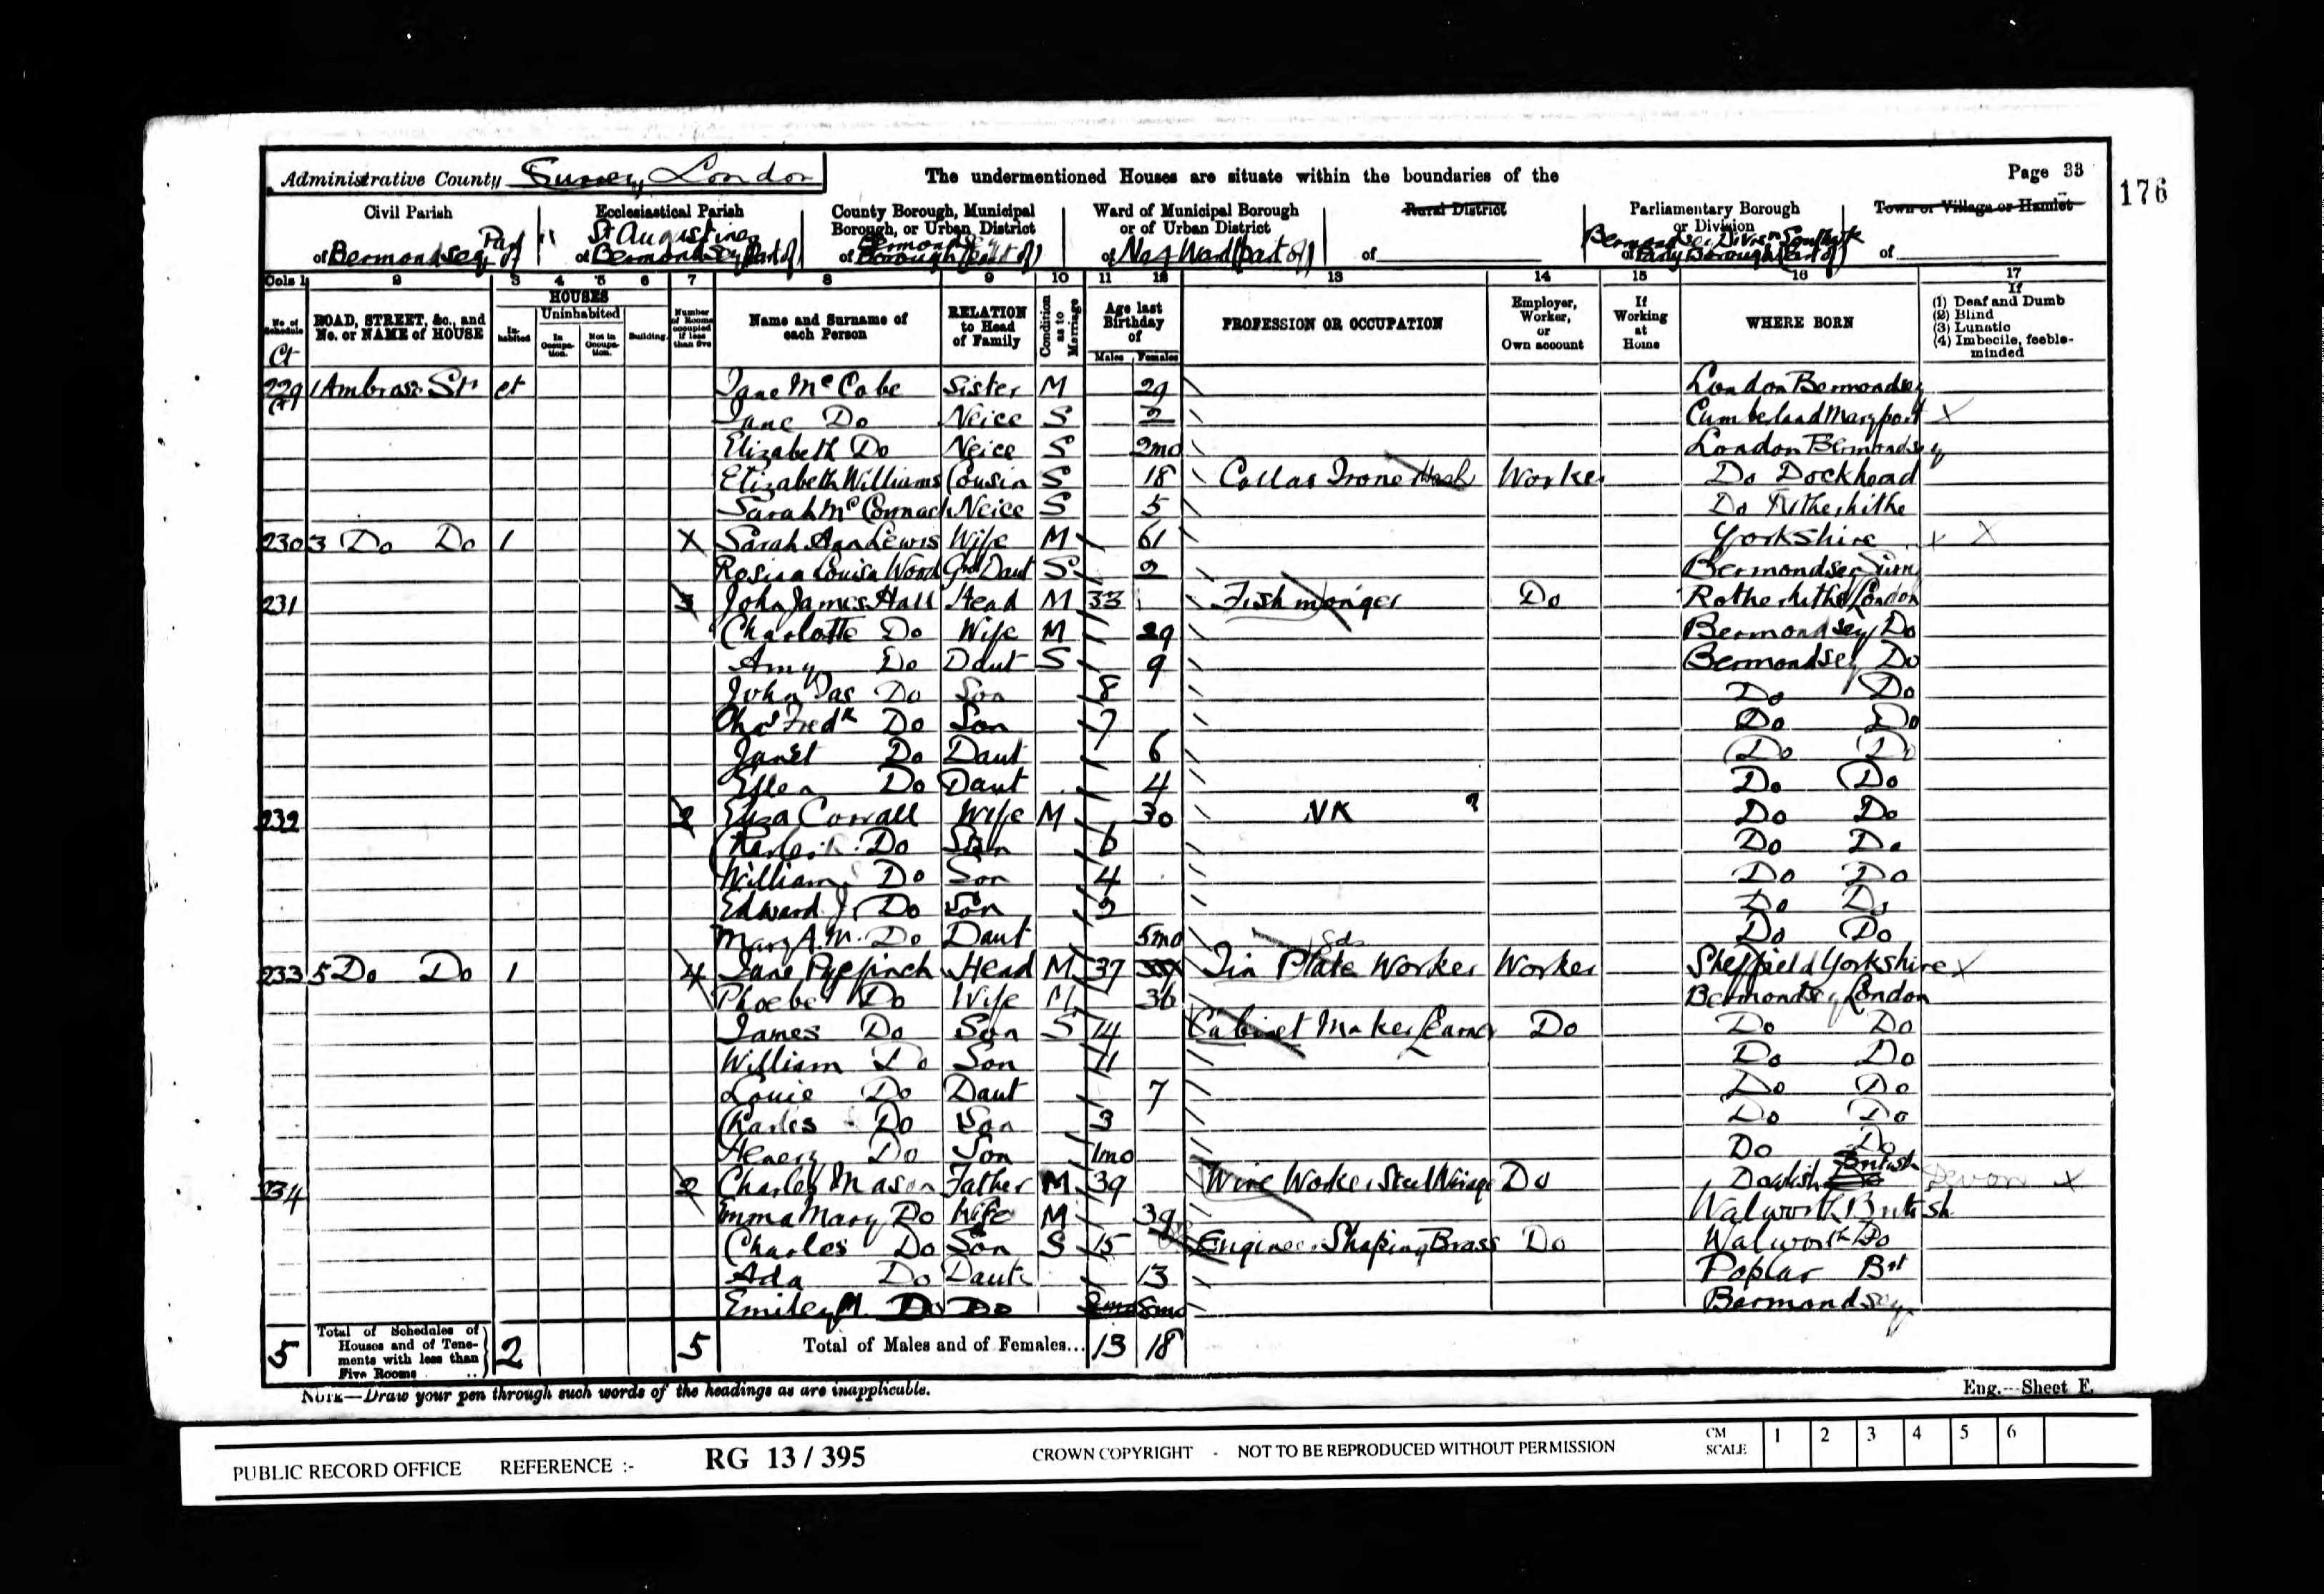 Administrative County Surrey London
The undermentioned Houses are situate within the boundaries of the
Page 33
176
Civil Parish
of Bermondsey Part of
Ecclesiastical Parish
of St Augustines Bermondsey (Part of)
County Borough, Municipal Borough, or Urban District
of Bermondsey Borough (part of)
Ward of Municipal Borough or of Urban District
of No 4 Ward (part of)
Rural District
of
Parliamentary Borough or Division
of
Town or Village or Hamlet
of
Cols 1 2 3 4 5 6 7 8 9 10 11 12 13 14 15 16 17
No. of Schedule
ROAD, STREET, &c., and No. or NAME of HOUSE
HOUSES
Inhabited
Uninhabited
In Occupation.
Not in Occupation.
Building.
Number of Rooms occupied if less than five
Name and Surname of each Person
RELATION to Head of Family
Condition as to Marriage
Age last Birthday of
Males Females
PROFESSION OR OCCUPATION
Employer, Worker, or Own account
If Working at Home
WHERE BORN
If
(1) Deaf and Dumb
(2) Blind
(3) Lunatic
(4) Imbecile, feeble-minded
Ct
229 1 Ambrose St ct Jane McCabe Sister M 29 London Bermondsey
Ct Jane Do Neice S 2 Cumberland Maryport X
Elizabeth Do Neice S 2mo London Bermondsey
Elizabeth Williams Cousin S 18 Collar Ironer Wash Worker Do Dockhead
Sarah McConnach Neice S 5 Do Ritherhithe
230 3 Do Do 1 X Sarah Ann Lewis Wife M 61 Yorkshire + X
Rosina Louisa Wood Grd Daut S 2 Bermondsey Surry
231 3 John James Hall Head M 33 Fishmonger Do Rotherhithe London
Charlotte Do Wife M 29 Bermondsey Do
Amy Do Daut S 9 Bermondsey Do
John Jas Do Son 8 Do Do
Chas Fredk Do Son 7 Do Do
Janet Do Daut 6 Do Do
Ellen Do Daut 4 Do Do
232 2 Eliza Corrall Wife M 30 NK ? Do Do
Do Son 6 Do Do
William Do Son 4 Do Do
Edward J. Do Son Do Do
Mary A. M. Do Daut 5mo Do Do
233 5 Do Do 1 4 Jane Pyefinch Head M 37 Tin Plate Worker Worker Sheffield Yorkshire X
Phoebe Do Wife M 36 Bermondsey London
James Do Son S 14 Cabinet Maker Learner Do Do Do
William Do Son 11 Do Do
Louie Do Daut 7 Do Do
Charles Do Son 3 Do Do
Henery Do Son 1mo Do Do
234 2 Charles Mason Father M 39 Wire Worker Do Dawlish British Devon X
Emma Mary Do Wife M 39 Walworth British
Charles Do Son S 15 Engineer Shaping Brass Do Walworth Do
Ada Do Daut 13 Poplar Brt
Emiley M. Do Do 8mo 8mo Bermondsey
5 Total of Schedules of Houses and of Tenements with less than Five Rooms .. 2 5 Total of Males and of Females... 13 18
NOTE—Draw your pen through such words of the headings as are inapplicable.
Eng.—Sheet E.
PUBLIC RECORD OFFICE REFERENCE :- RG 13 / 395 CROWN COPYRIGHT - NOT TO BE REPRODUCED WITHOUT PERMISSION CM SCALE 1 2 3 4 5 6